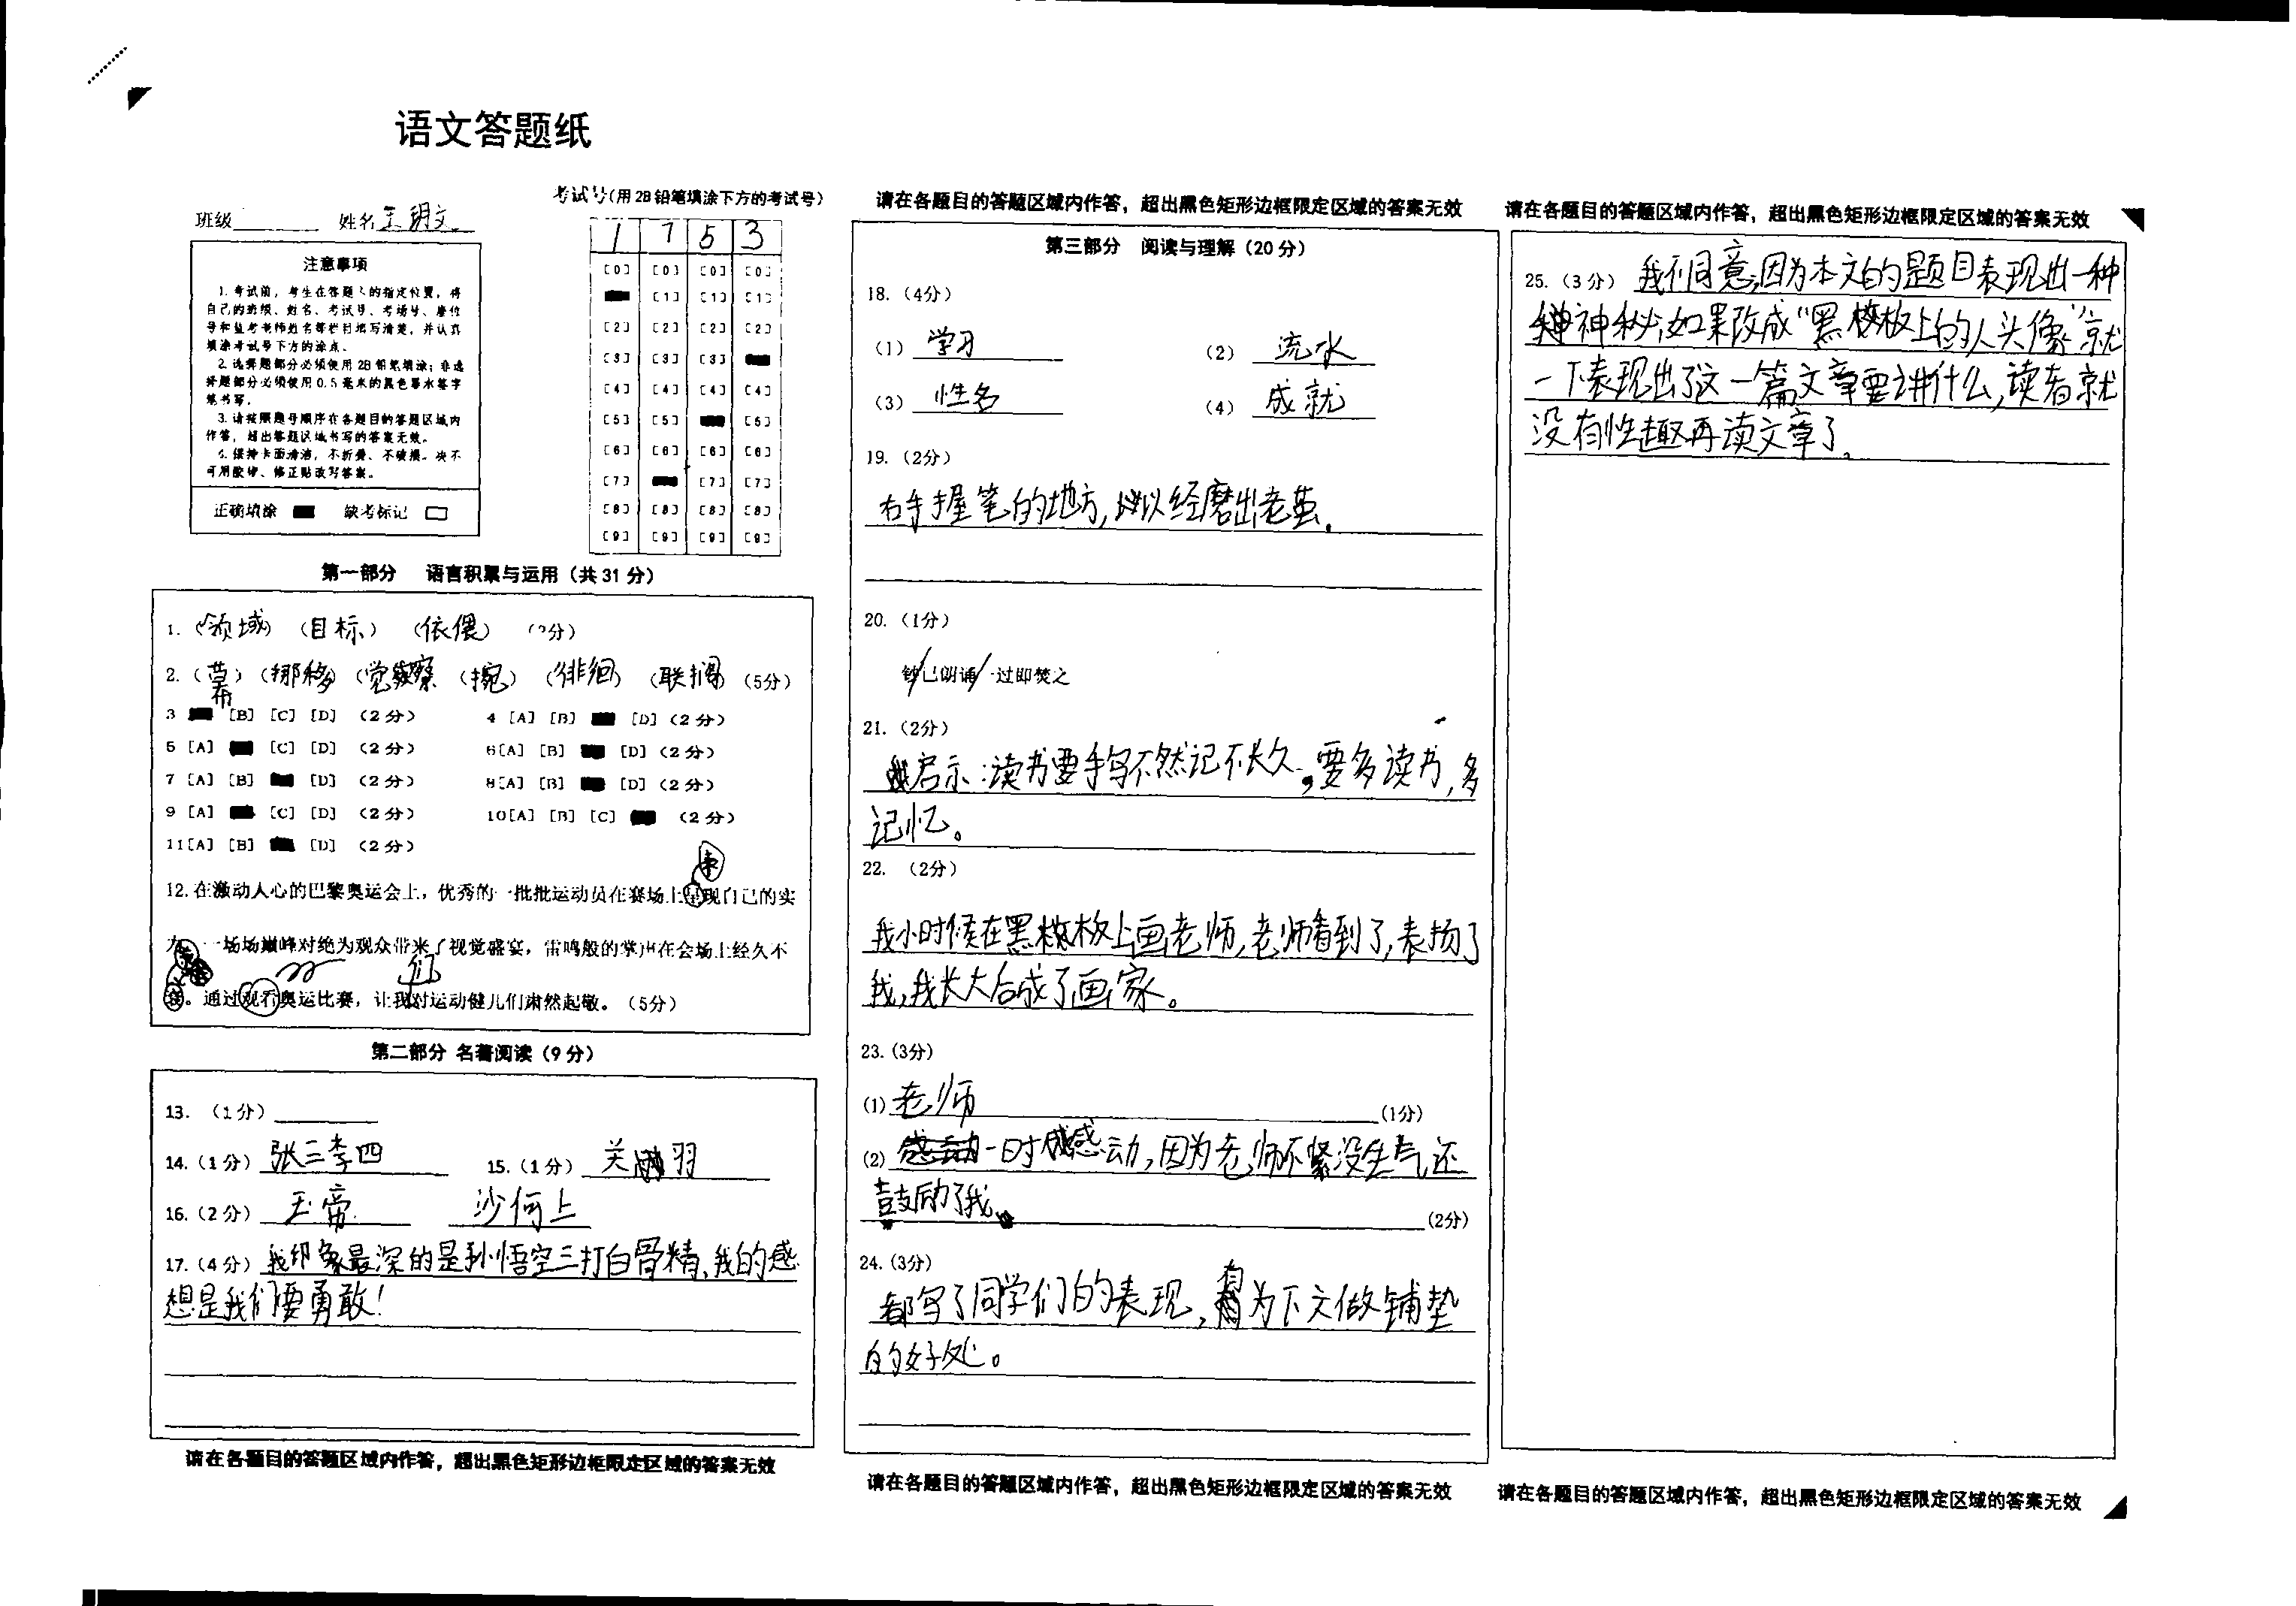 语文答题纸
班级 姓名 王玥文
考试号(用2B铅笔填涂下方的考试号)
1 7 5 3
[0] [0] [0] [0]
[1] [1] [1]
[2] [2] [2] [2]
[3] [3] [3]
[4] [4] [4] [4]
[5] [5] [5]
[6] [6] [6] [6]
[7] [7] [7]
[8] [8] [8] [8]
[9] [9] [9] [9]
注意事项
1. 考试前，考生在答题 的指定位置，将
自己的班级、姓名、考试号、考场号、座位
号和监考老师姓名等栏目填写清楚，并认真
填涂考试号下方的涂点。
2. 选择题部分必须使用2B铅笔填涂；非选
择题部分必须使用0.5毫米的黑色墨水签字
笔书写。
3. 请按照题号顺序在各题目的答题区域内
作答，超出答题区域书写的答案无效。
4. 保持卡面清洁，不折叠、不破损。决不
可用胶带、修正贴改写答案。
正确填涂 缺考标记
第一部分 语言积累与运用（共31分）
1. （领域）（目标）（依偎）
2. （幕）（挪移）（觉察（捥）（徘徊）（联搨）（5分）
3 [B] [C] [D] （2分） 4 [A] [B] [D]（2分）
5 [A] [C] [D] （2分） 6[A] [B] [D]（2分）
7 [A] [B] [D] （2分） 8[A] [B] [D]（2分）
9 [A] [C] [D] （2分） 10[A] [B] [C] （2分）
11[A] [B] [D] （2分）
12. 在激动人心的巴黎奥运会上，优秀的一批批运动员在赛场上呈现自己的实
一场场巅峰对绝为观众带来了视觉盛宴，雷鸣般的掌声在会场上经久不
们
。通过观看奥运比赛，让我对运动健儿们肃然起敬。（5分）
第二部分 名著阅读（9分）
13. （1分）
14.（1分）张三李四 15.（1分）关羽
16.（2分）玉帝 沙何上
17.（4分）我印象最深的是孙悟空三打白骨精,我的感
想是我们要勇敢!
请在各题目的答题区域内作答，超出黑色矩形边框限定区域的答案无效
请在各题目的答题区域内作答，超出黑色矩形边框限定区域的答案无效
第三部分 阅读与理解（20分）
18.（4分）
（1） 学习 （2） 流水
（3） 性名 （4） 成就
19.（2分）
右手握笔的地方,以经磨出老茧.
20.（1分）
钞/已朗诵/一过即焚之
21.（2分）
启示:读书要手写不然记不长久,要多读书,多
记忆。
22. （2分）
我小时候在黑板上画老师,老师看到了,表扬了
我,我长大后成了画家。
23.（3分）
(1) 老师 (1分)
(2) 一时感动,因为老师不紧没生气还
鼓励了我。 (2分)
24.（3分）
都写了同学们的表现,有为下文做铺垫
的好处。
请在各题目的答题区域内作答，超出黑色矩形边框限定区域的答案无效
请在各题目的答题区域内作答，超出黑色矩形边框限定区域的答案无效
25.（3分）我不同意,因为本文的题目表现出一种
神秘,如果改成“黑板上的人头像”就
一下表现出了这一篇文章要讲什么,读者就
没有性趣再读文章了.
请在各题目的答题区域内作答，超出黑色矩形边框限定区域的答案无效